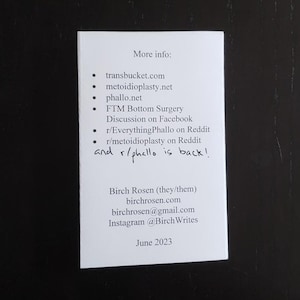 More info:
• transbucket.com
• metoidioplasty.net
• phallo.net
• FTM Bottom Surgery
Discussion on Facebook
• r/EverythingPhallo on Reddit
• r/metoidioplasty on Reddit
and r/phallo is back!
Birch Rosen (they/them)
birchrosen.com
birchrosen@gmail.com
Instagram @BirchWrites
June 2023